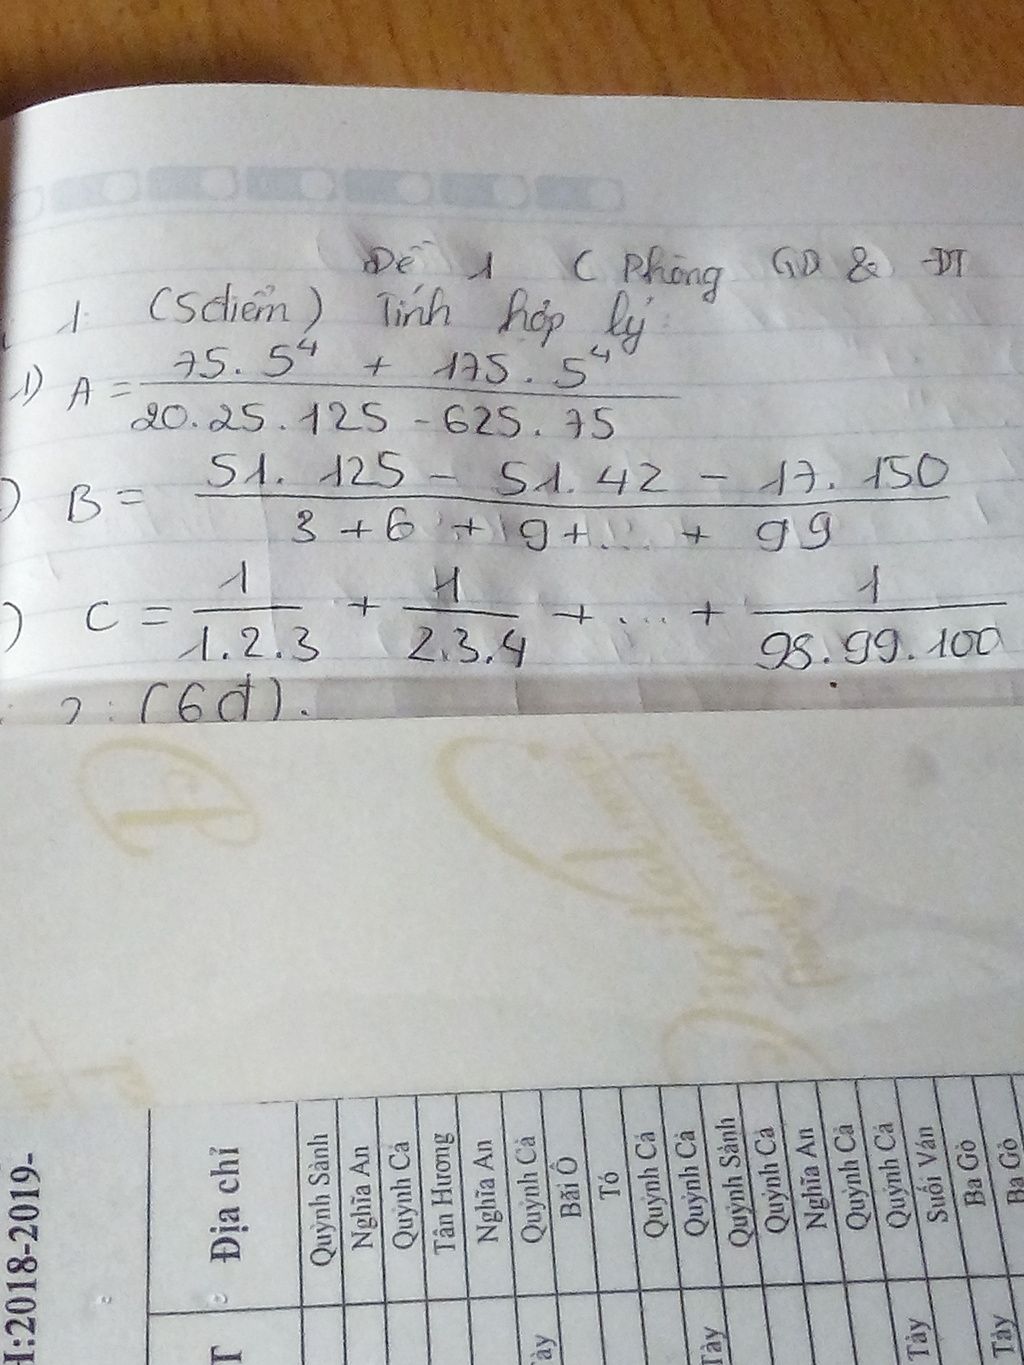 Đề 1 ( Phòng GD & ĐT
1: (5điểm) Tính hợp lý:
1) A = 75.5⁴ + 175.5⁴ / 20.25.125 - 625.75
) B = 51.125 - 51.42 - 17.150 / 3 + 6 + 9 + ... + 99
) C = 1 / 1.2.3 + 1 / 2.3.4 + ... + 1 / 98.99.100
2: (6đ).
I:2018-2019-
T Địa chỉ
Quỳnh Sành
Nghĩa An
Quỳnh Cả
Tân Hương
Nghĩa An
Quỳnh Cả
ày Bãi Ô
Tó
Quỳnh Cả
Quỳnh Cả
Tày Quỳnh Sành
Quỳnh Cả
Nghĩa An
Quỳnh Cả
Quỳnh Cả
Tày Suối Ván
Ba Gò
Tày Ba Gò